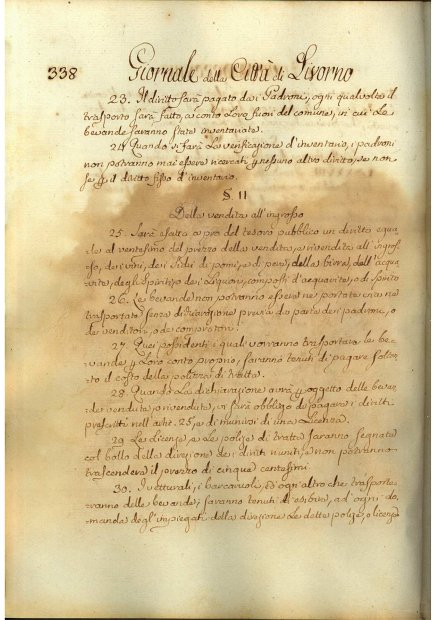 338
Giornale della Città di Livorno
23. Il diritto sarà pagato dai Padroni, ogni qual volta il
trasporto sarà fatto, a conto Loro fuori del comune, in cui Le
bevande saranno state inventariate.
24. Quando si farà La verificazione d'inventario, i padroni
non potranno mai essere ricercati p nessuno altro diritto, se non
se p il diritto fisso d'inventario.
§ 11
Della vendita all'ingrosso
25. Sarà esatto a pro del tesoro pubblico un diritto egua
le al ventesimo del prezzo della vendita, e rivendita all'ingros
so, dei vini, dei Sidri di pomi, e di pere, della birra, dell'acqua
vite, degli Spiriti, e dei Liquori, composti d'acquavite, o di Spirito
26. Le bevande non potranno essere ne portate via, ne
trasportate senza dichiarazione previa da parte dei padroni, o
dei venditori, o dei compratori.
27. Quei possidenti i quali vorranno trasportare le be-
vande p Loro conto proprio, saranno tenuti di pagare soltan
to il costo della polizza di tratta.
28. Quando La dichiarazione avrà p oggetto delle bevan
de vendute, o rivendute, vi sarà obbligo di pagare i diritti
prescritti nell'artic. 25, e di munirsi di una Licenza.
29. Le licenze, e Le polize di tratta saranno segnate
col bollo della direzione dei diritti riuniti, e non potranno
trascendere il prezzo di cinque centesimi.
30. I vetturali, i barcaruoli, ed ogni altro che trasporte-
ranno delle bevande, saranno tenuti d'esibire, ad ogni do
manda degl'impiegati della direzione Le dette polize, o licenze